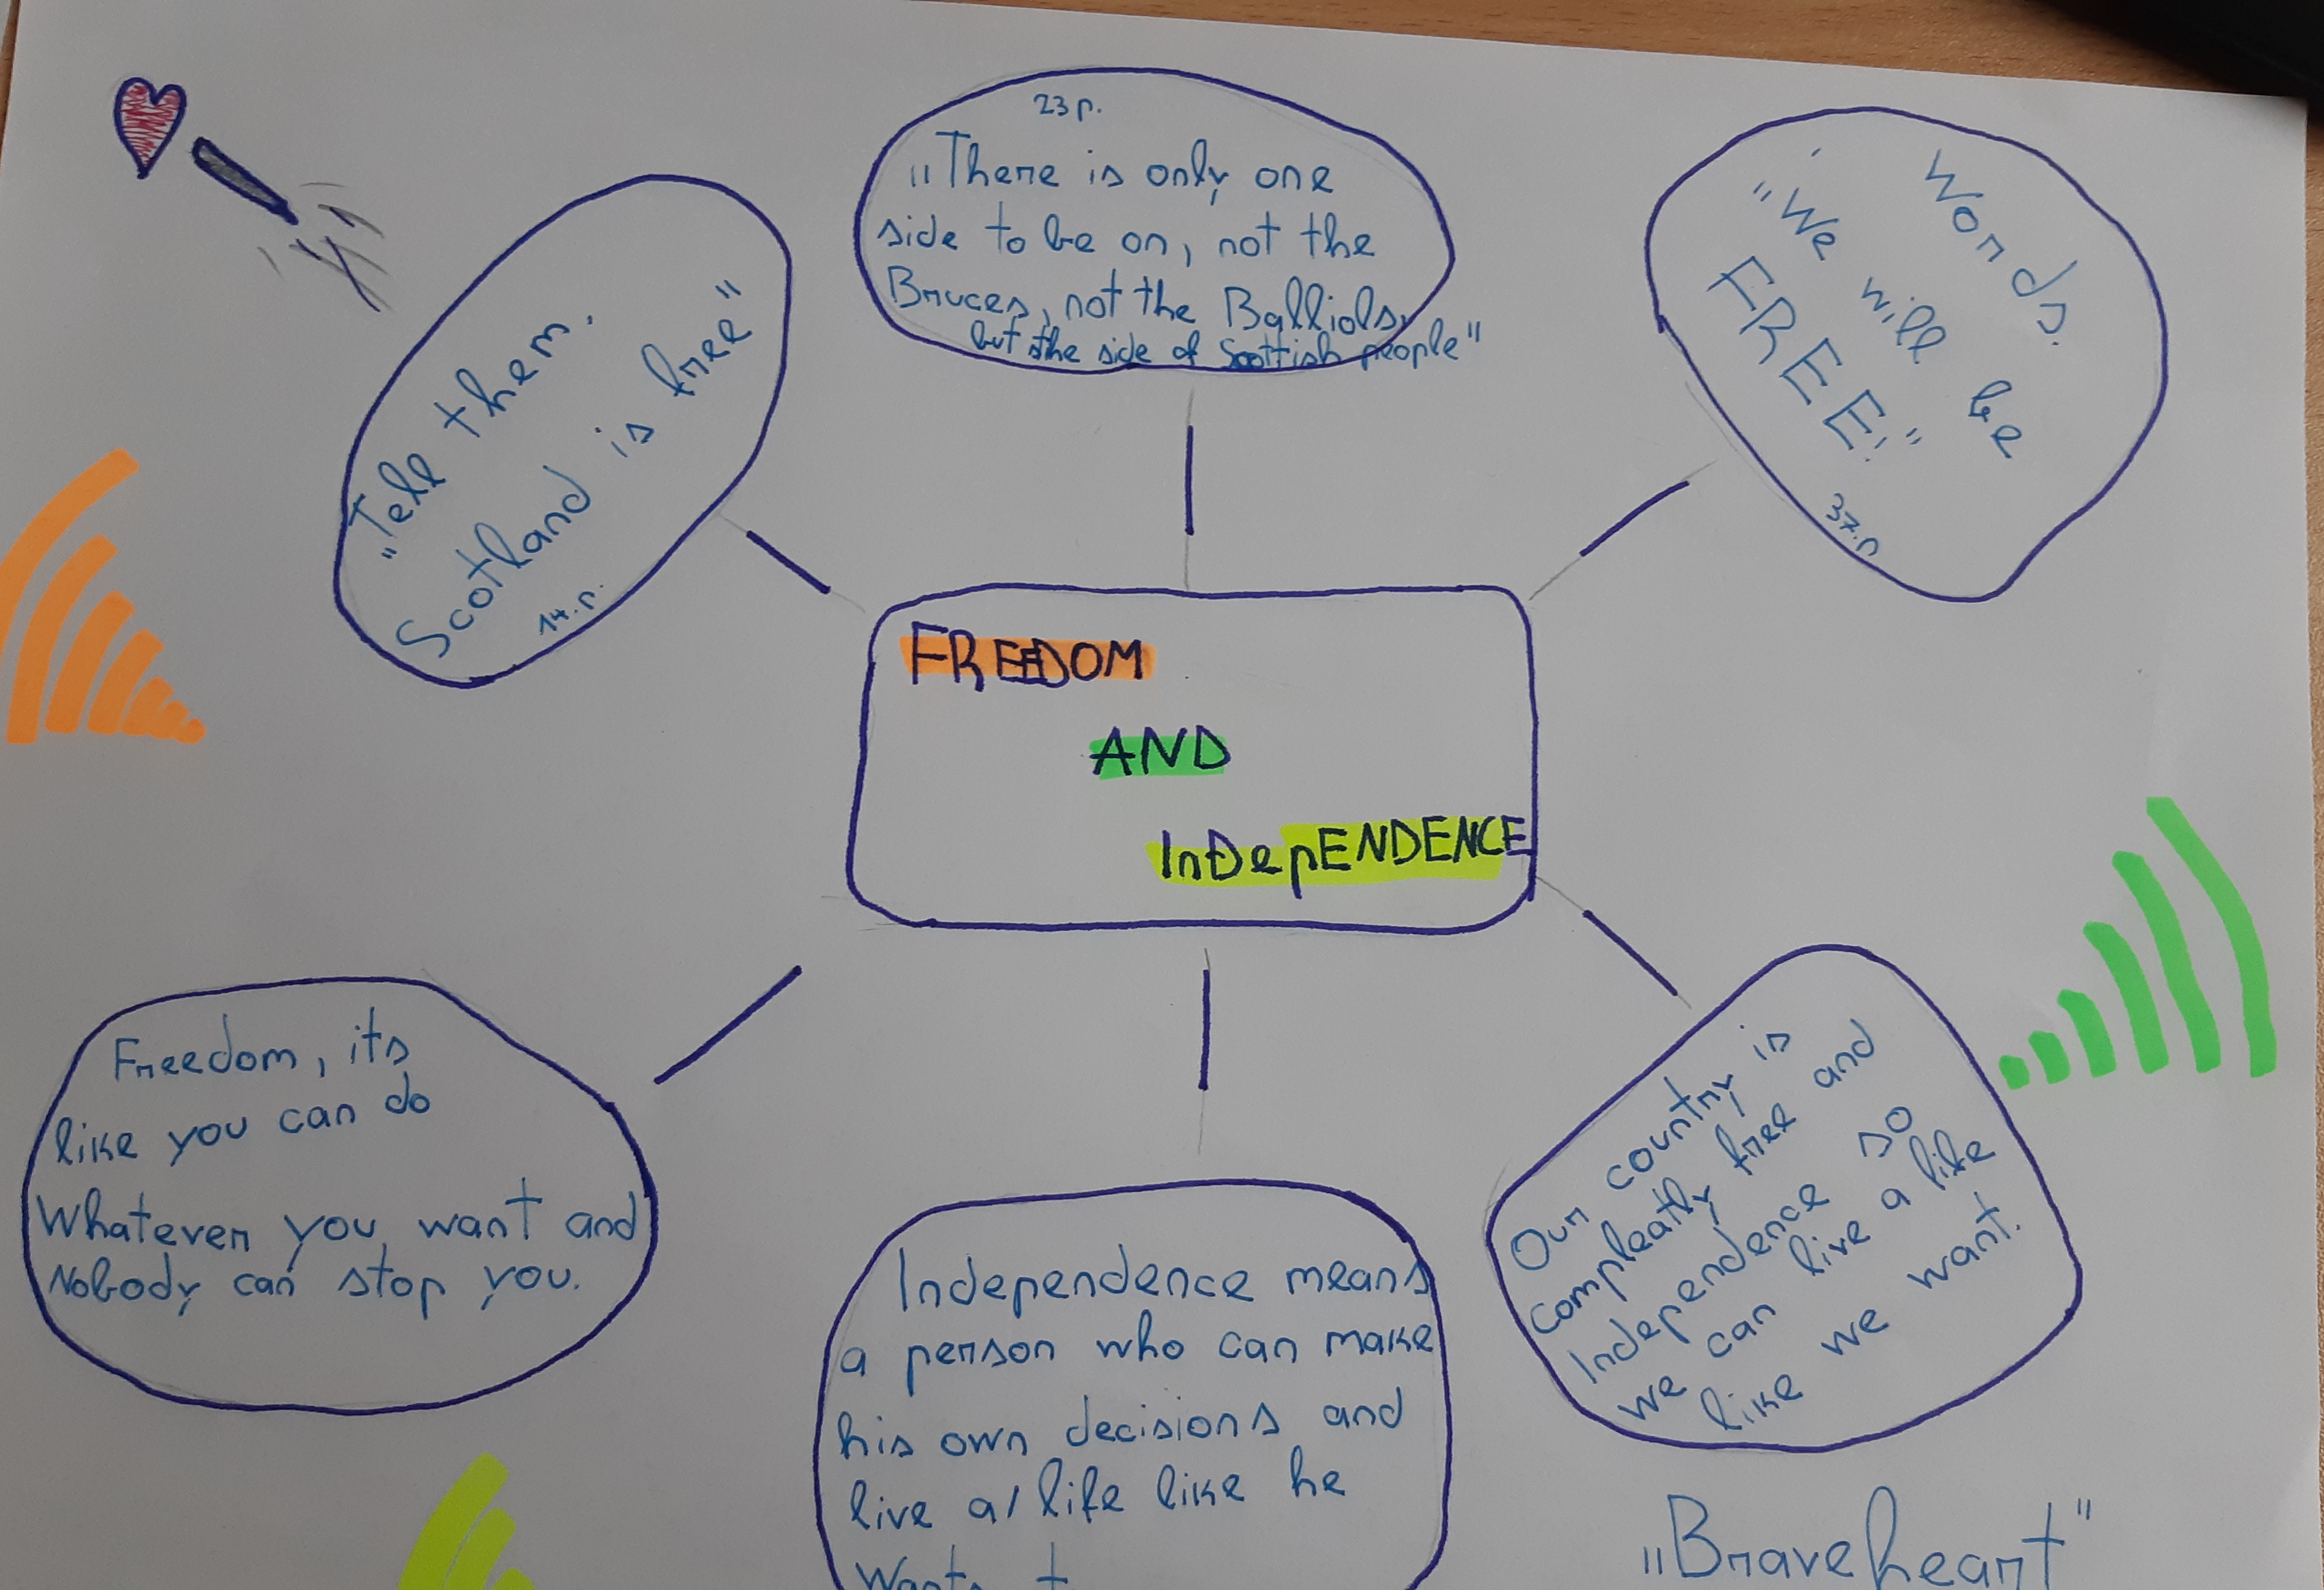 23 p.
„There is only one
side to be on, not the
Bruces, not the Balliols,
but the side of Scottish people"
"Tell them.
Scotland is free"
14.p.
Words.
"We will be
FREE!"
37.p
FREEDOM
AND
InDepENDENCE
Freedom, its
like you can do
Whatever you want and
Nobody can stop you.
Independence means
a person who can make
his own decisions and
live a life like he
Our country is
compleatly free and
Independence so
we can live a life
like we want.
„Braveheart"